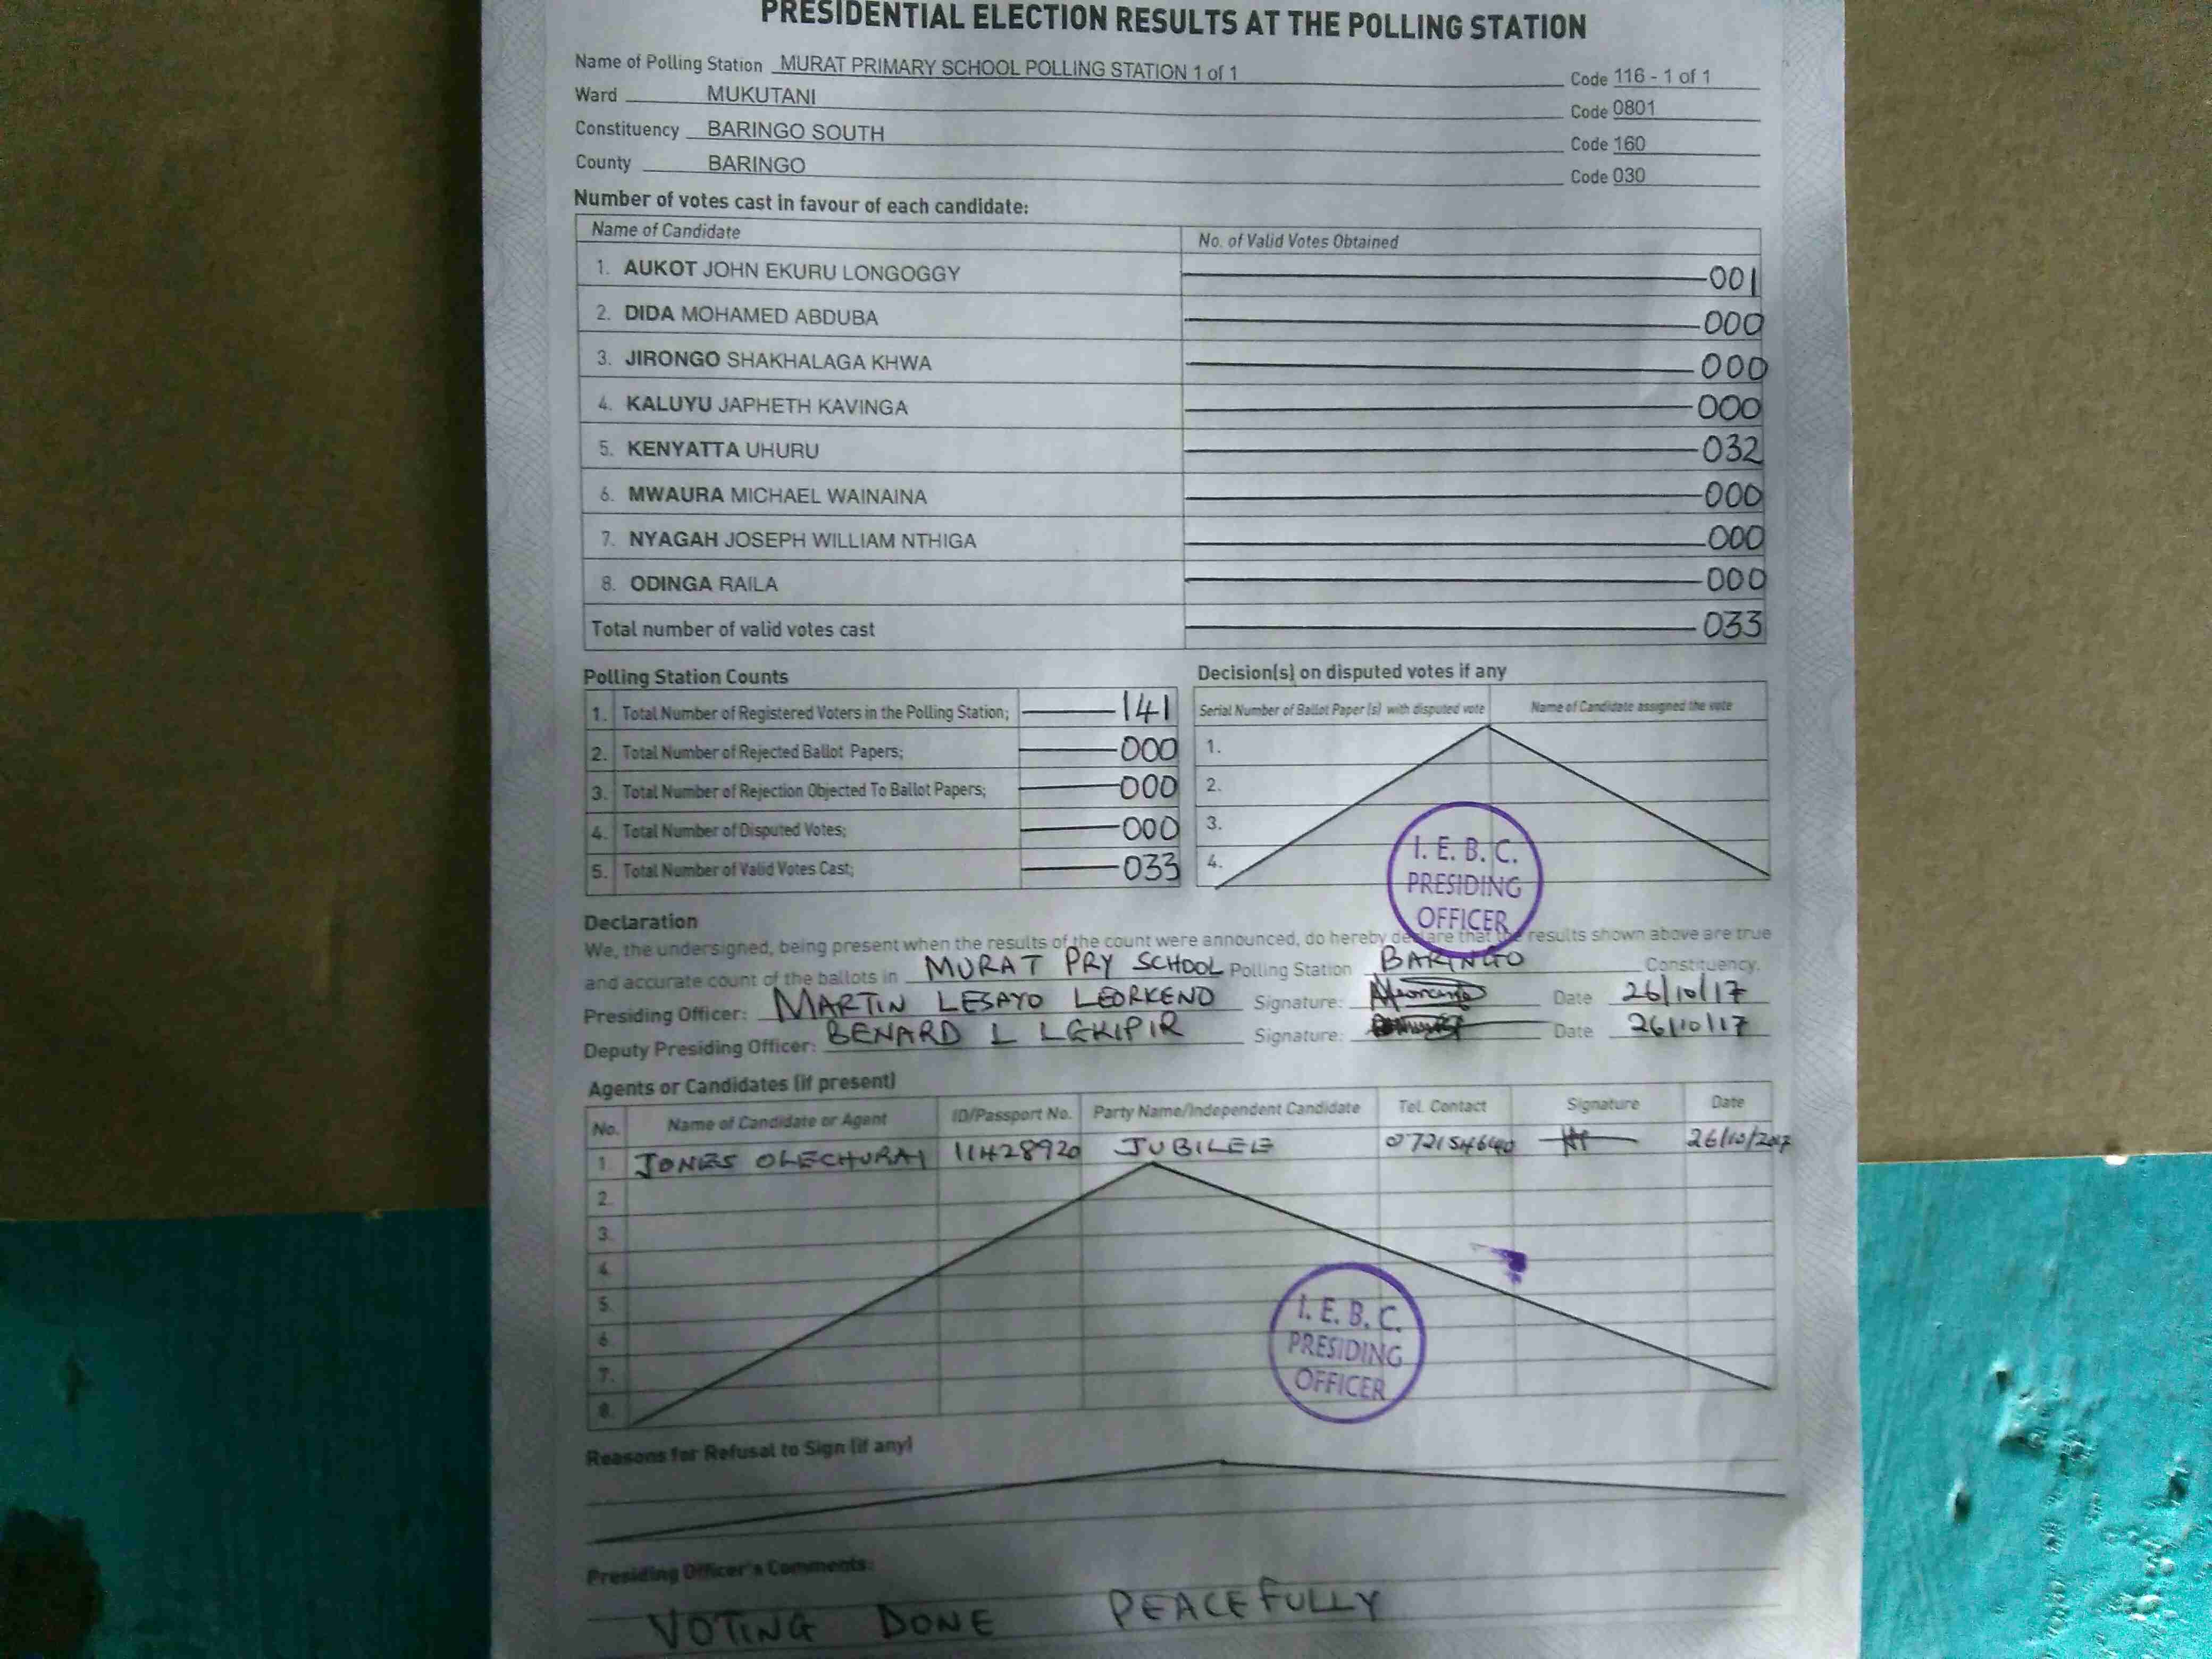 PRESIDENTIAL ELECTION RESULTS AT THE POLLING STATION
Name of Polling Station MURAT PRIMARY SCHOOL POLLING STATION 1 of 1 Code 116 - 1 of 1
Ward MUKUTANI Code 0801
Constituency BARINGO SOUTH Code 160
County BARINGO Code 030
Number of votes cast in favour of each candidate:
Name of Candidate No. of Valid Votes Obtained
1. AUKOT JOHN EKURU LONGOGGY 001
2. DIDA MOHAMED ABDUBA 000
3. JIRONGO SHAKHALAGA KHWA 000
4. KALUYU JAPHETH KAVINGA 000
5. KENYATTA UHURU 032
6. MWAURA MICHAEL WAINAINA 000
7. NYAGAH JOSEPH WILLIAM NTHIGA 000
8. ODINGA RAILA 000
Total number of valid votes cast 033
Polling Station Counts
1. Total Number of Registered Voters in the Polling Station; 141
2. Total Number of Rejected Ballot Papers; 000
3. Total Number of Rejection Objected To Ballot Papers; 000
4. Total Number of Disputed Votes; 000
5. Total Number of Valid Votes Cast; 033
Decision(s) on disputed votes if any
Serial Number of Ballot Paper (s) with disputed vote Name of Candidate assigned the vote
1.
2.
3.
4.
I. E. B. C.
PRESIDING
OFFICER
Declaration
We, the undersigned, being present when the results of the count were announced, do hereby declare that the results shown above are true
and accurate count of the ballots in MURAT PRY SCHOOL Polling Station BARINGO Constituency.
Presiding Officer: MARTIN LESAYO LEORKENO Signature: Date 26/10/17
Deputy Presiding Officer: BENARD L LEKIPIR Signature: Date 26/10/17
Agents or Candidates (if present)
No. Name of Candidate or Agent ID/Passport No. Party Name/Independent Candidate Tel. Contact Signature Date
1 JONES OLECHURAI 11428920 JUBILEE 26/10/2017
2.
3.
4.
5.
6.
7.
8.
I. E. B. C.
PRESIDING
OFFICER
Reasons for Refusal to Sign (if any)
Presiding Officer's Comments:
VOTING DONE PEACEFULLY